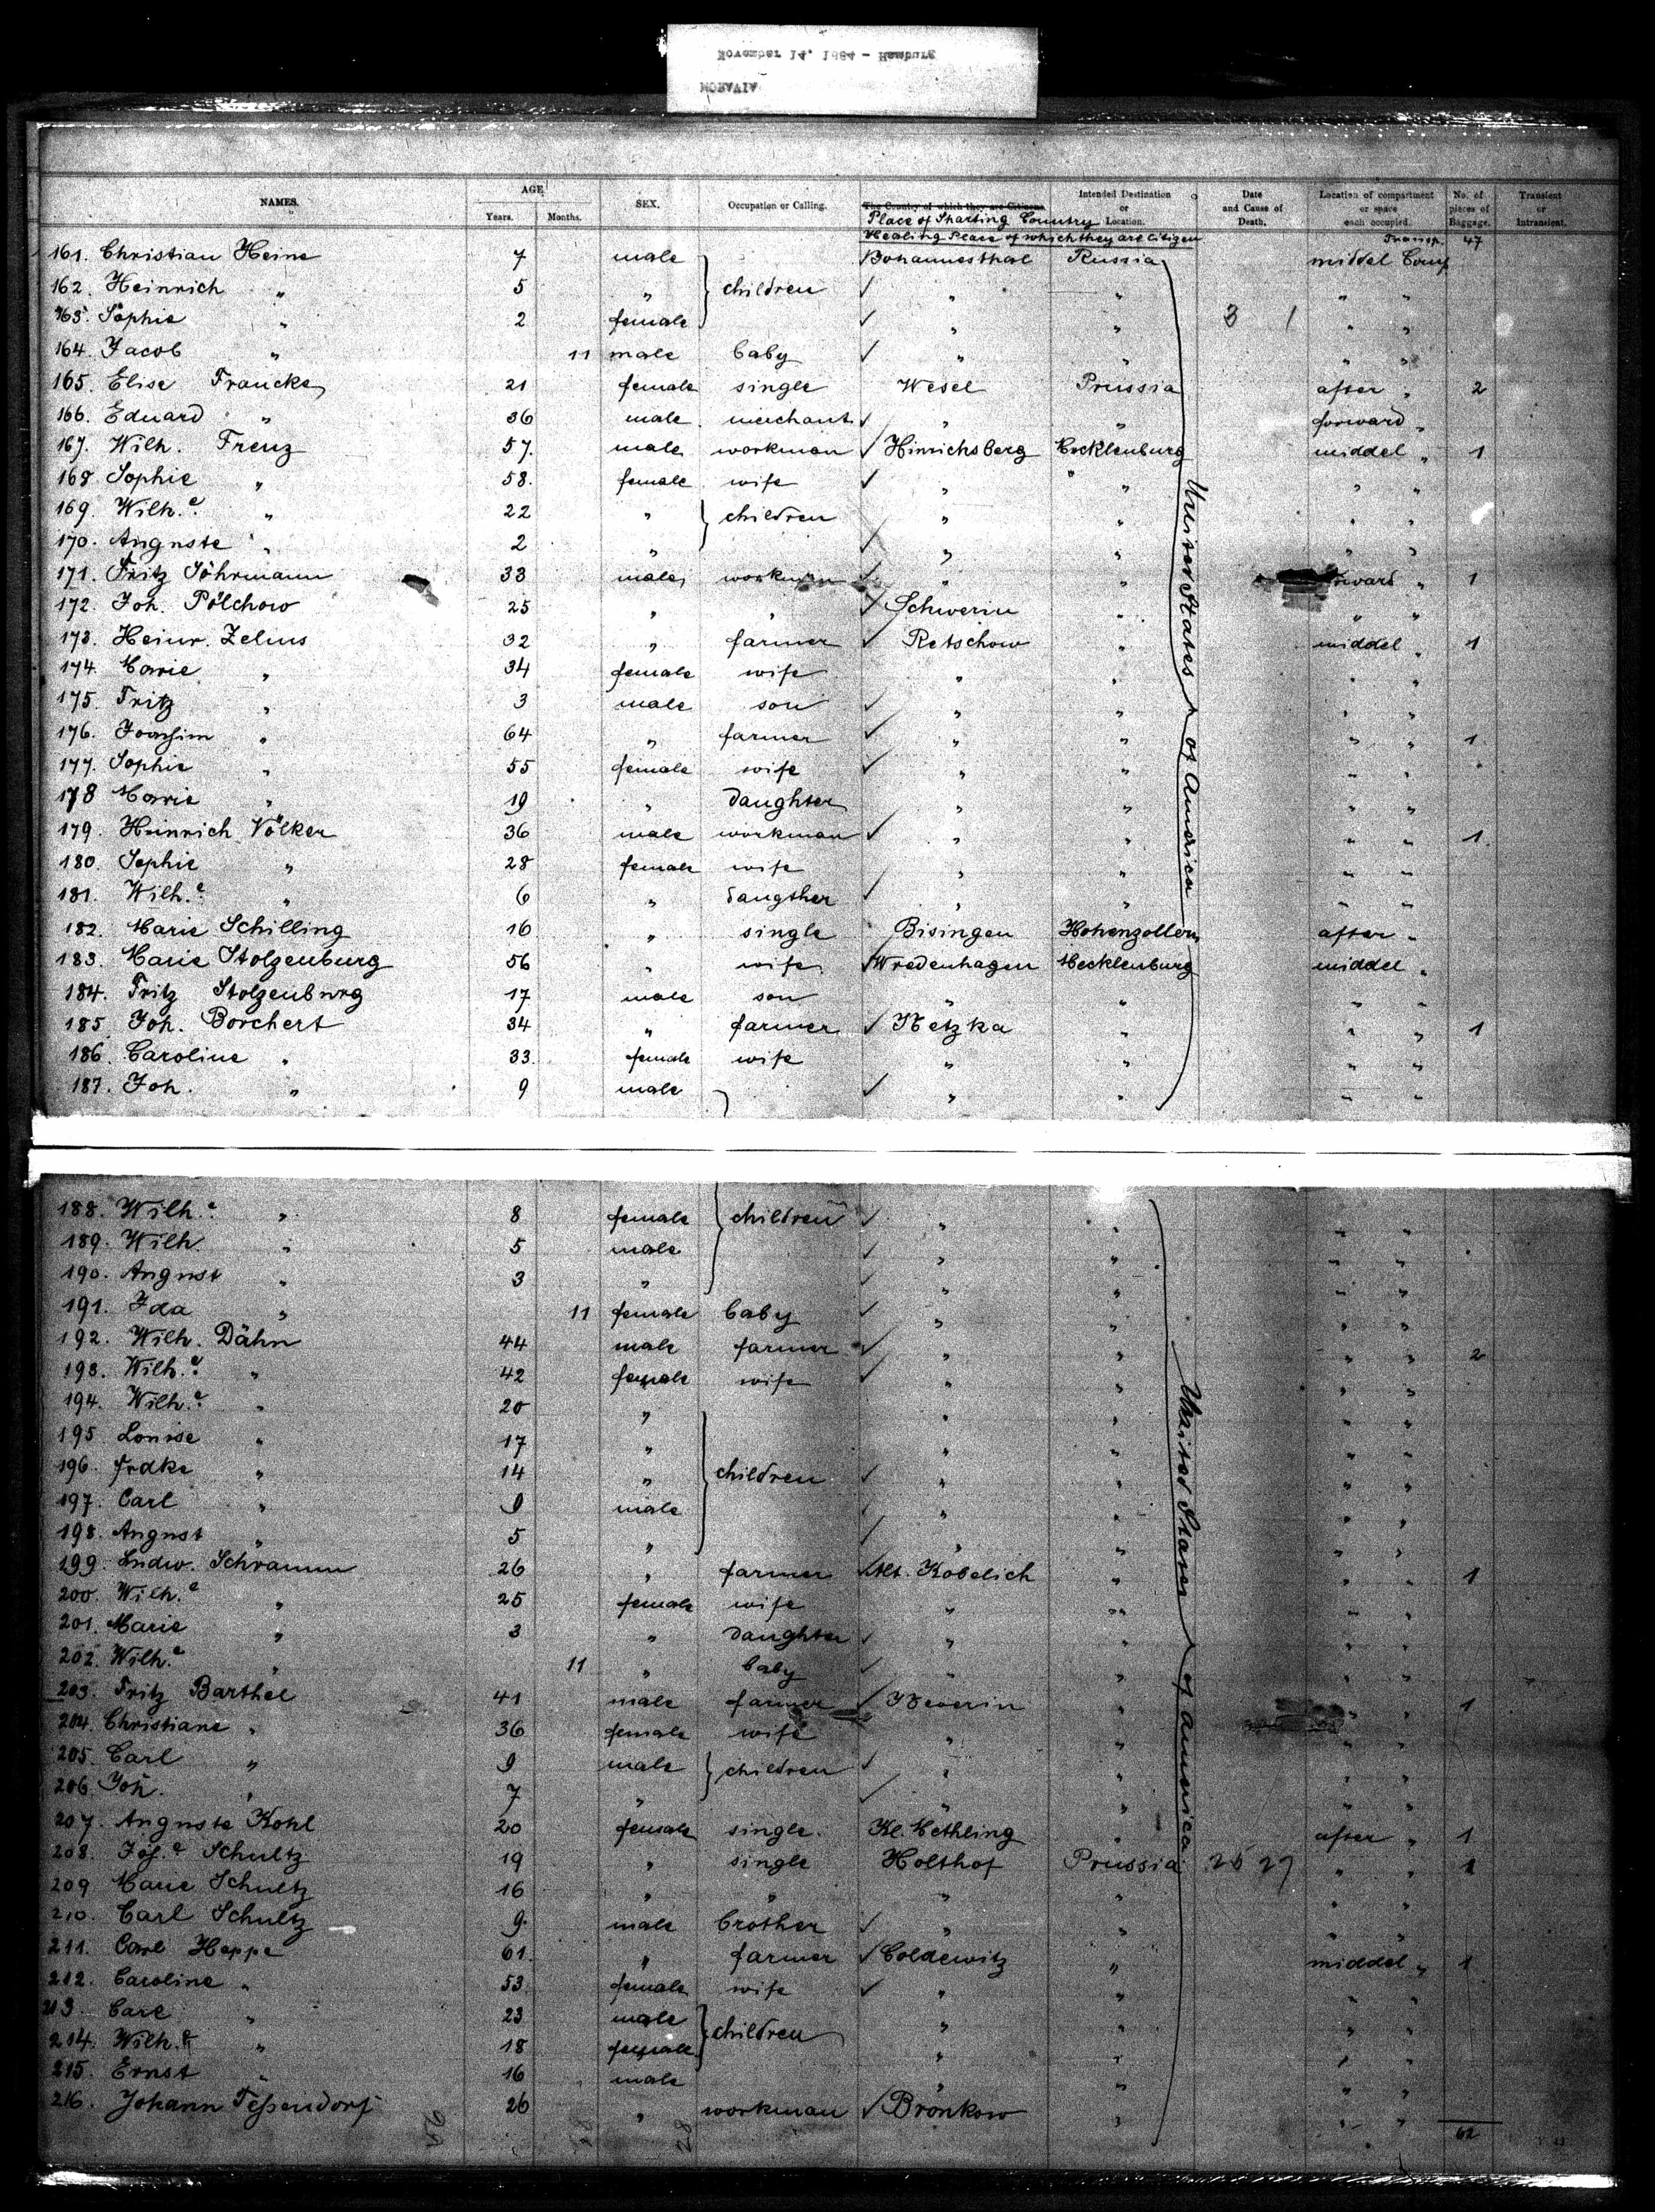 November 14, 1884 - Hamburg
MORAVIA
NAMES. AGE. Years. Months. SEX. Occupation or Calling. The Country of which they are Citizens. Intended Destination or Location. Date and Cause of Death. Location of compartment or space each occupied. No. of pieces of Baggage. Transient or Intransient.
Place of Starting Country
Place of which they are Citizen
Transp. 47
161. Christian Heine 7 male Johannesthal Russia middel Comp
162. Heinrich " 5 " children " " " "
163. Sophie " 2 female " " 3 1 " "
164. Jacob " 11 male baby " " " "
165. Elise Francke 21 female single Wesel Prussia after " 2
166. Eduard " 36 male merchant " " forward "
167. Wilh. Frenz 57. male workman Hinrichsberg Mecklenburg middel " 1
168 Sophie " 58. female wife " " " "
169. Wilh.e " 22 " children " " " "
170. Auguste " 2 " " " " "
171. Fritz Jöhrmann 33 male workman " " forward " 1
172. Joh. Pölchow 25 " " Schwerin " " "
173. Heinr. Zelms 32 " farmer Retschow " middel " 1
174. Marie " 34 female wife " " " "
175. Fritz " 3 male son " " " "
176. Joachim " 64 " farmer " " " " 1
177. Sophie " 55 female wife " " " "
178 Marie " 19 " daughter " " " "
179. Heinrich Völker 36 male workman " " " " 1.
180. Sophie " 28 female wife " " " "
181. Wilh.e " 6 " daugther " " " "
182. Marie Schilling 16 " single Bisingen Hohenzollern after "
183. Marie Stolzenburg 56 " wife Wredenhagen Mecklenburg middel "
184. Fritz Stolzenburg 17 male son " " " "
185 Joh. Borchert 34 " farmer Netzka " " " 1
186. Caroline " 33. female wife " " " "
187. Joh. " 9 male " " " "
United States of America
188. Wilh.e " 8 female children " " " "
189. Wilh. " 5 male " " " "
190. August " 3 " " " " "
191. Ida " 11 female baby " " " "
192. Wilh. Dähn 44 male farmer " " " " 2
193. Wilh.e " 42 female wife " " " "
194. Wilh.e " 20 " " " " "
195 Louise " 17 " " " " "
196. Frdke " 14 " children " " " "
197. Carl " 9 male " " " "
198. August " 5 " " " " "
199. Ludw. Schramm 26 " farmer Alt. Kobelich " " " 1
200. Wilh.e " 25 female wife " " " "
201. Marie " 3 " daughter " " " "
202. Wilh.e " 11 " baby " " " "
203. Fritz Barthel 41 male farmer Neverin " " " 1
204. Christiane " 36 female wife " " " "
205. Carl " 9 male children " " " "
206 Joh. " 7 " " " " "
207. Auguste Kohl 20 female single. Kl. Methling " after " 1
208. Joh.e Schultz 19 " single Holthof Prussia 25 27 " " 1
209 Marie Schultz 16 " " " " " "
210. Carl Schultz 9. male brother " " " "
211. Carl Heppe 61. " farmer Coldewitz " middel " 1
212. Caroline " 53. female wife " " " "
213 Carl " 23 male children " " " "
214. Wilh.e " 18 female " " " "
215. Ernst " 16 male " " " "
216. Johann Teßendorf 26 " workman Bronkow " " "
United States of America
62